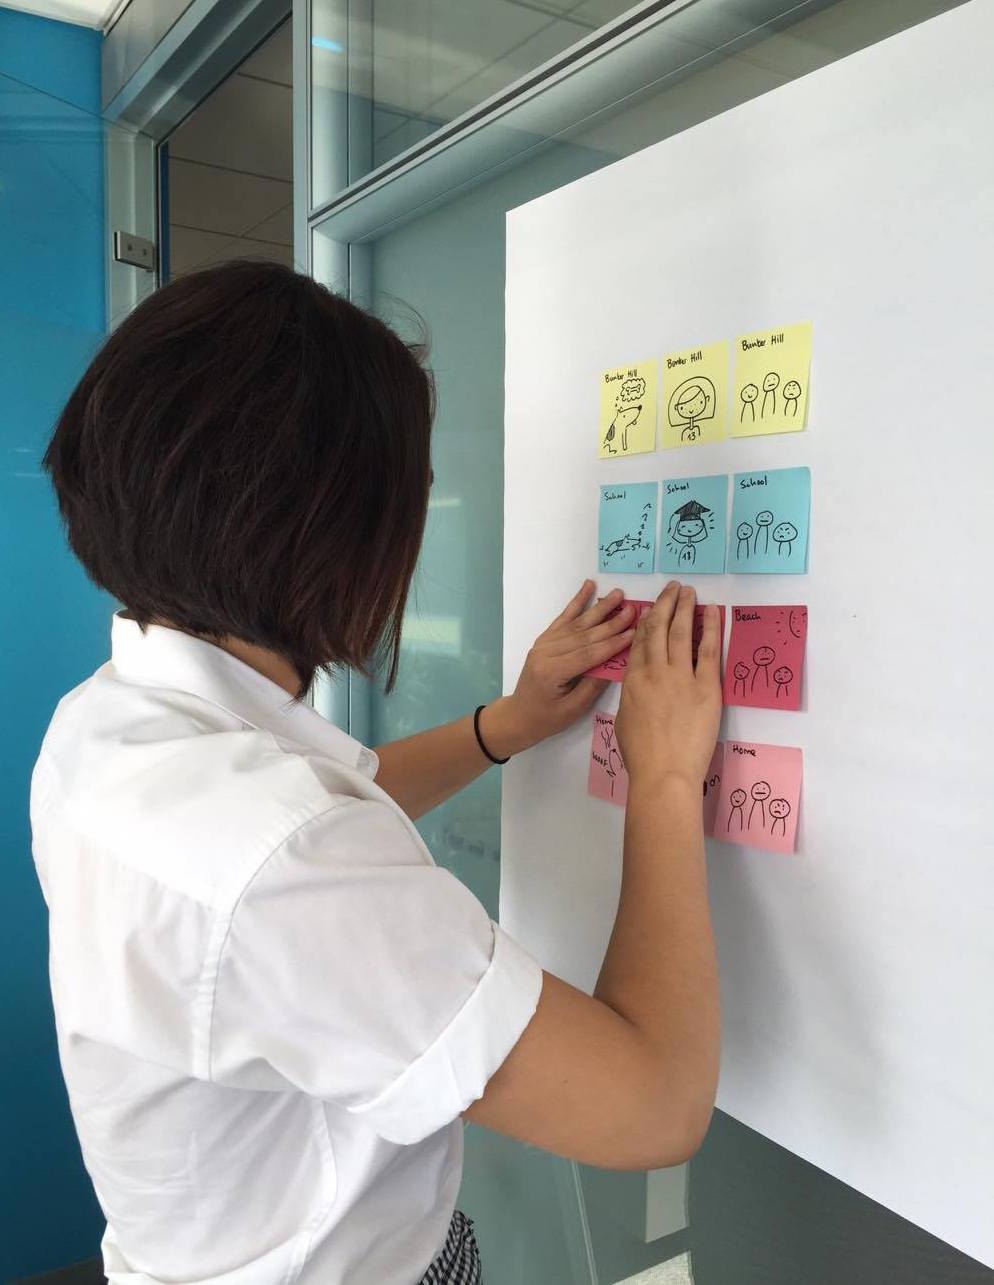 Bunker Hill
Bunker Hill
Bunker Hill
13
School
School
School
13
Beach
Home
WOOF
Home